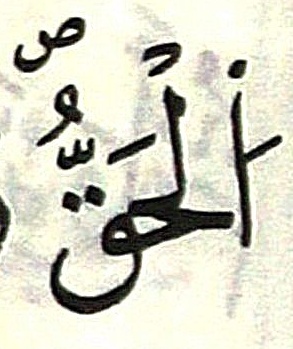 اَلْحَقُّ ص